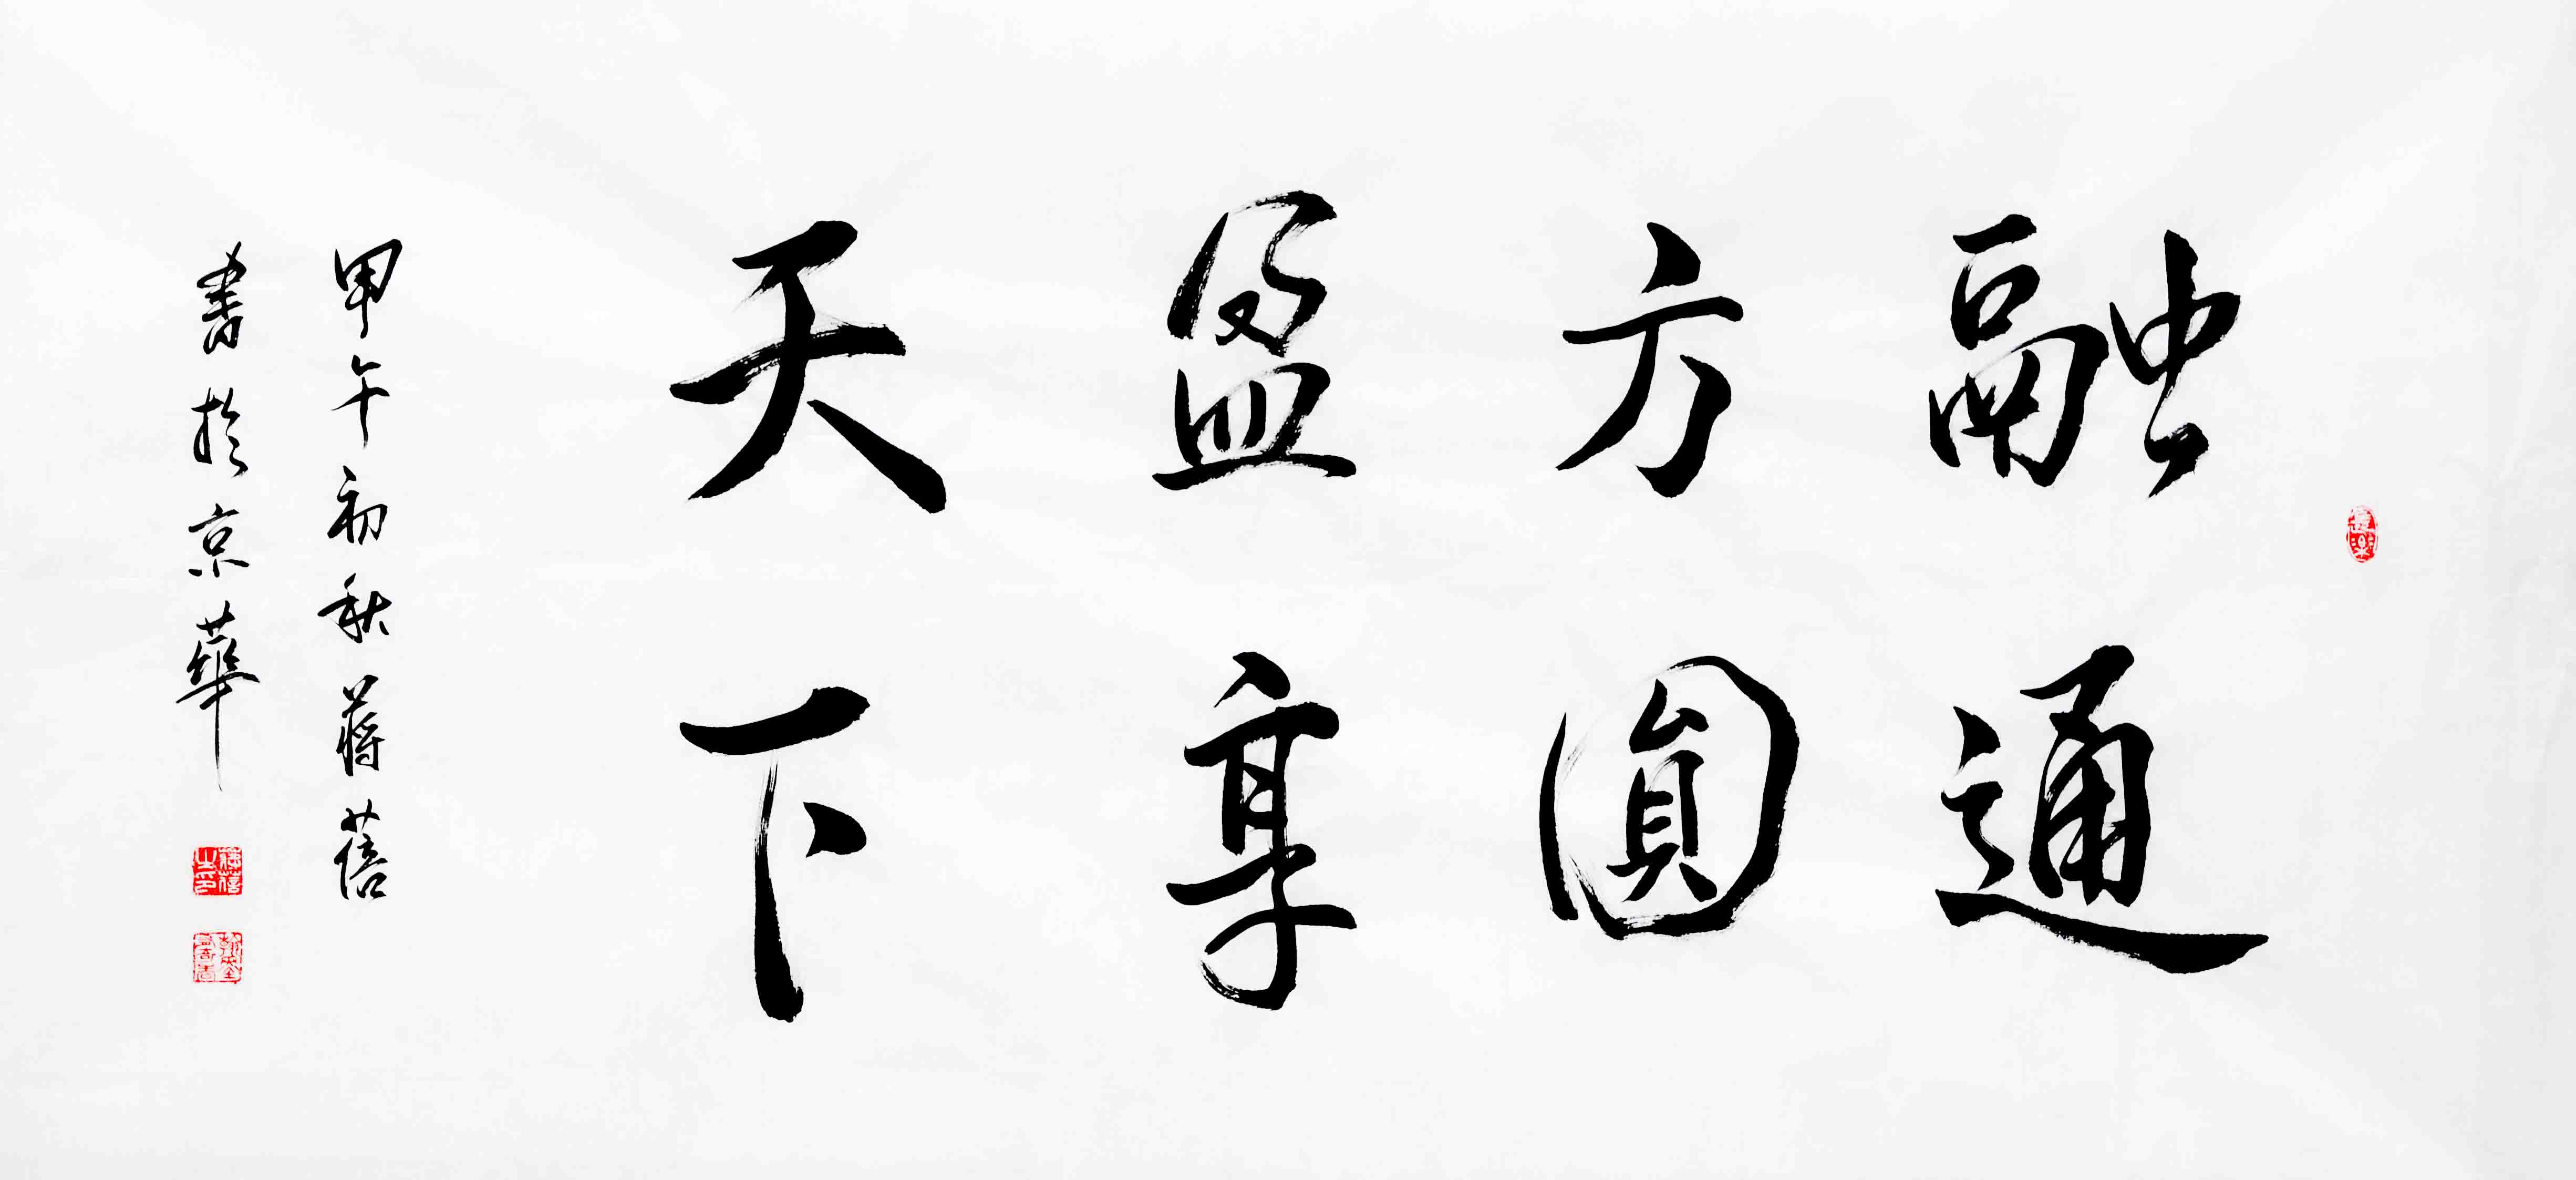 融通
方圓
盈享
天下
甲午初秋蔣蓓
書於京華